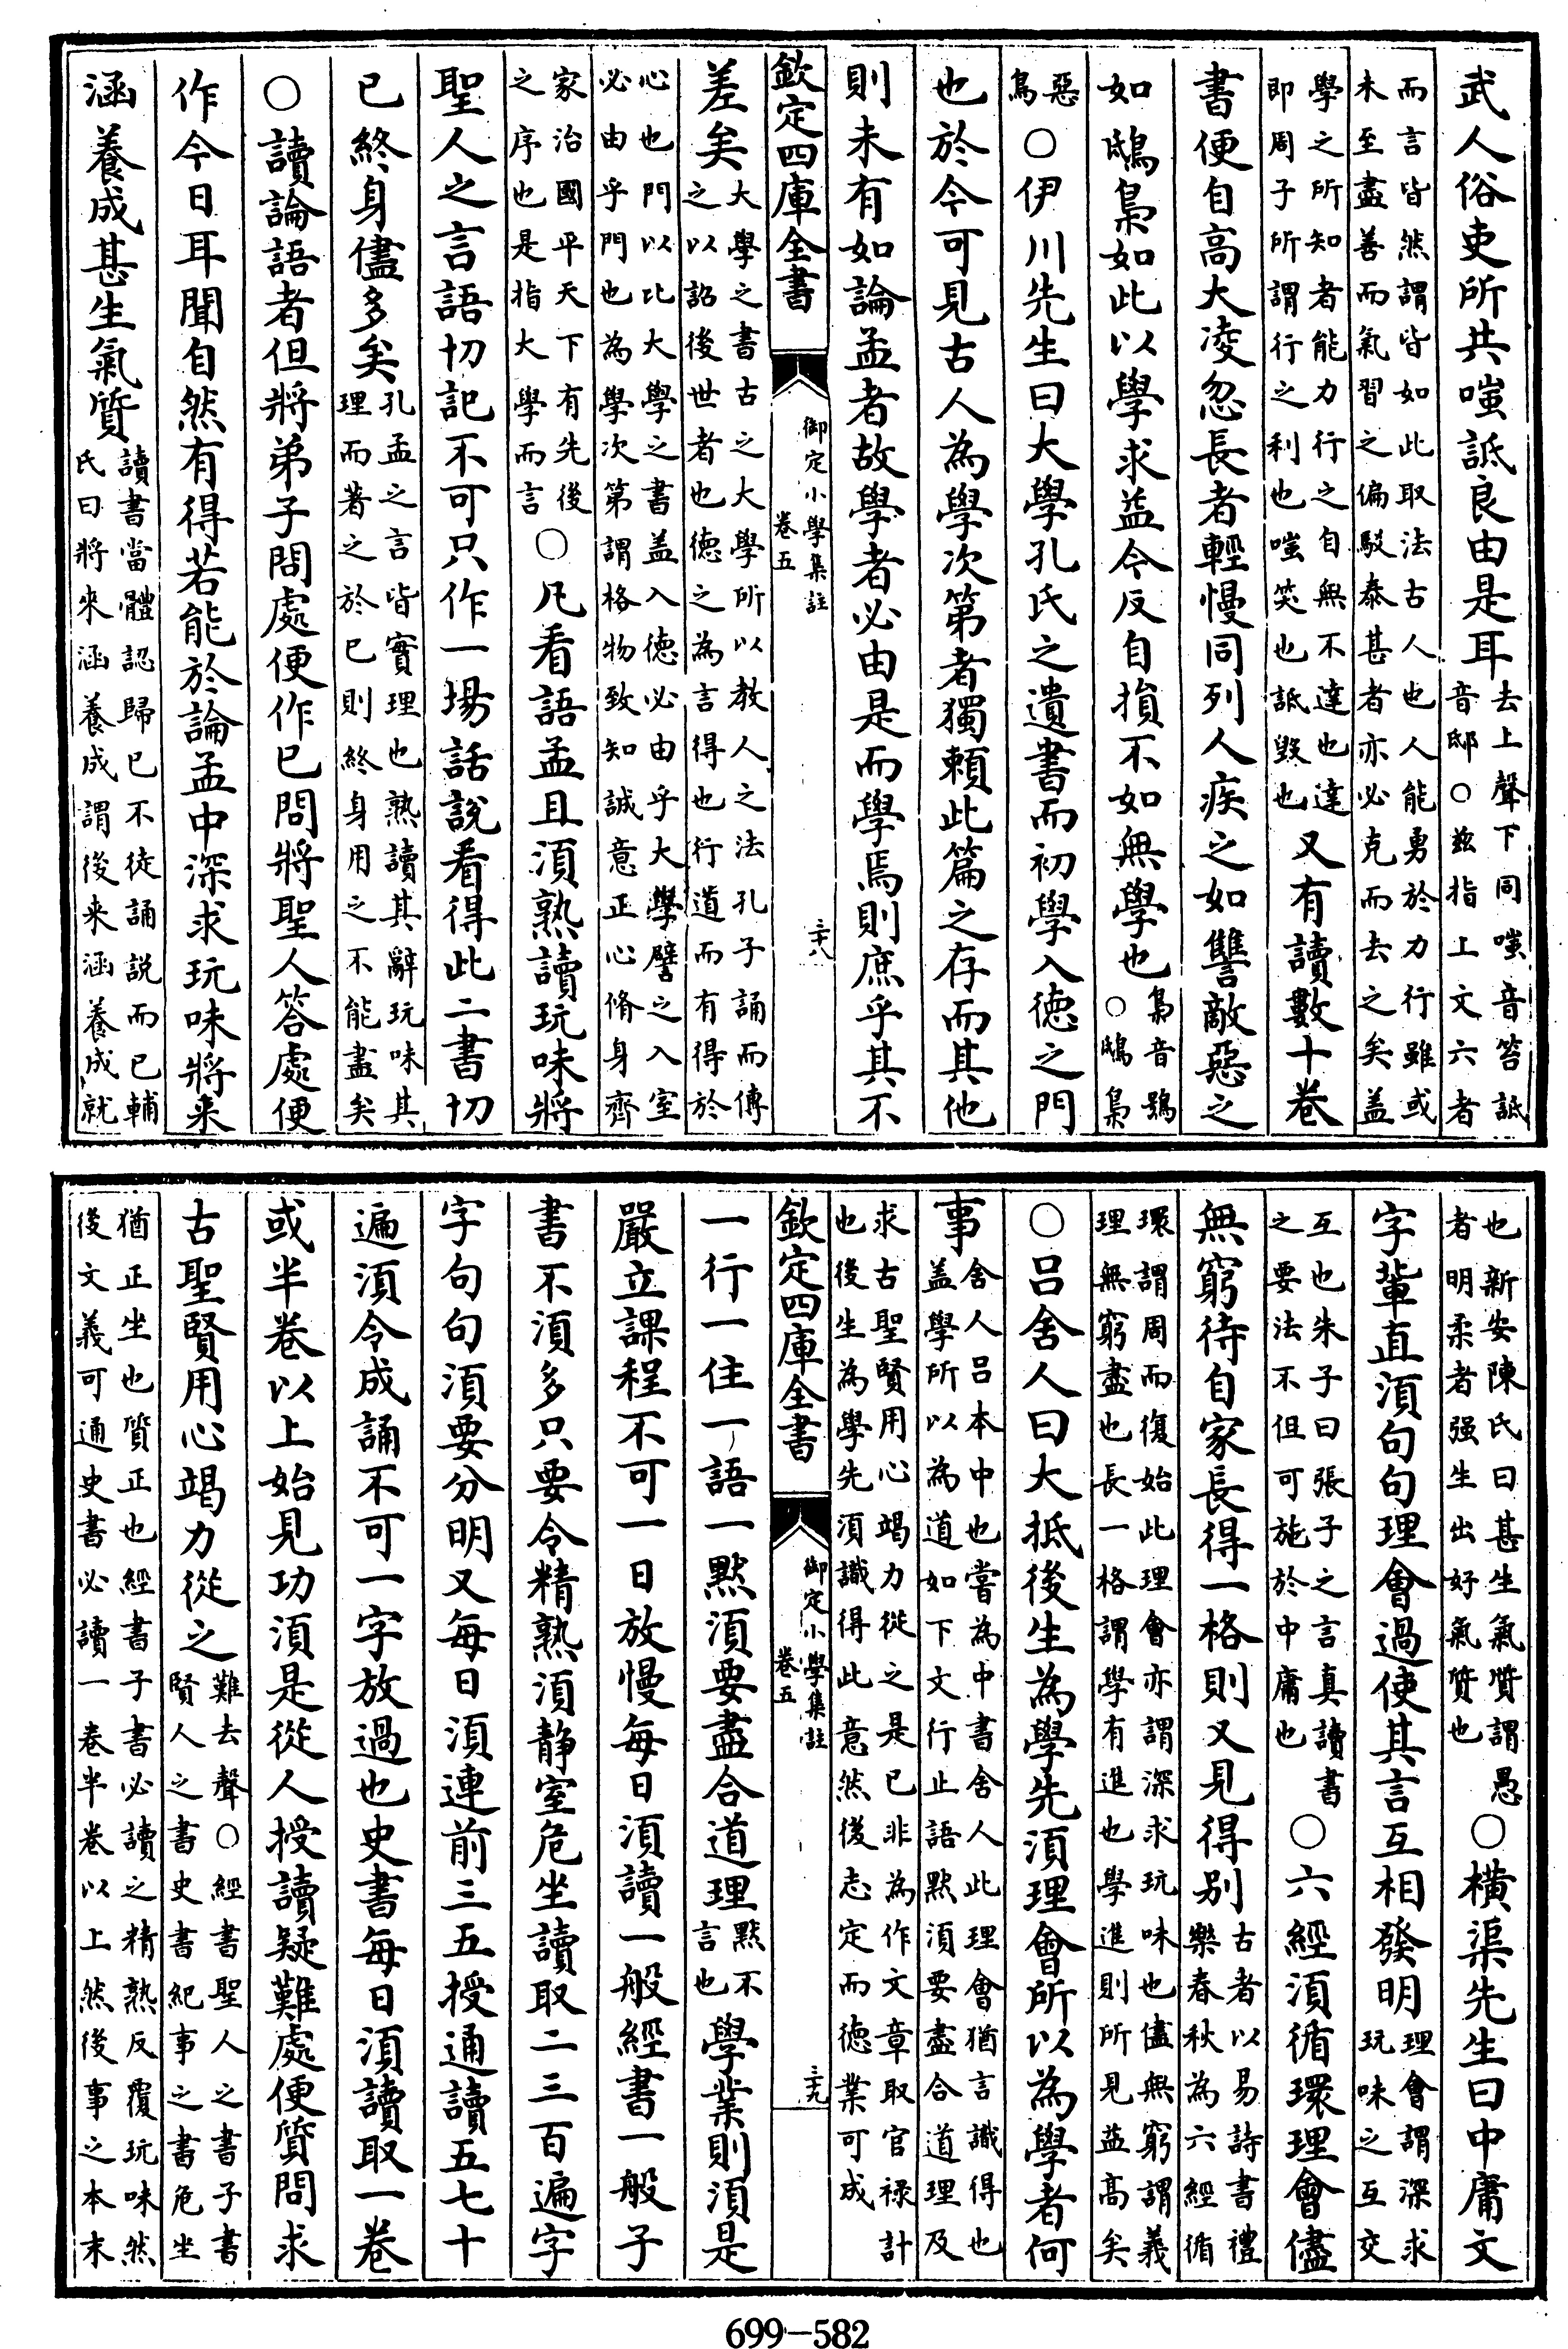 武人俗吏所共嗤詆良由是耳去上聲下同嗤音笞詆音邸○兹指上文六者
而言皆然謂皆如此取法古人也人能勇於力行雖或未至盡善而氣習之偏駁泰甚者亦必克而去之矣盖
學之所知者能力行之自無不達也達即周子所謂行之利也嗤笑也詆毀也又有讀數十卷
書便自高大凌忽長者輕慢同列人疾之如讐敵惡之
如鴟梟如此以學求益今反自損不如無學也梟音鴞○鴟梟
惡鳥○伊川先生曰大學孔氏之遺書而初學入德之門
也於今可見古人為學次第者獨賴此篇之存而其他
則未有如論孟者故學者必由是而學焉則庶乎其不
欽定四庫全書 御定小學集註 卷五 三十八
差矣大學之書古之大學所以教人之法孔子誦而傳之以詔後世者也德之為言得也行道而有得於
心也門以比大學之書盖入德必由乎大學譬之入室必由乎門也為學次第謂格物致知誠意正心脩身齊
家治國平天下有先後之序也是指大學而言○凡看語孟且須熟讀玩味將
聖人之言語切記不可只作一場話說看得此二書切
已終身儘多矣孔孟之言皆實理也熟讀其辭玩味其理而著之於已則終身用之不能盡矣
○讀論語者但將弟子問處便作已問將聖人答處便
作今日耳聞自然有得若能於論孟中深求玩味將来
涵養成甚生氣質讀書當體認歸已不徒誦說而已輔氏曰將來涵養成謂後来涵養成就
也新安陳氏曰甚生氣質謂愚者明柔者强生出好氣質也○横渠先生曰中庸文
字輩直須句句理會過使其言互相發明理會謂深求玩味之互交
互也朱子曰張子之言真讀書之要法不但可施於中庸也○六經須循環理會儘
無窮待自家長得一格則又見得别古者以易詩書禮樂春秋為六經循
環謂周而復始此理會亦謂深求玩味也儘無窮謂義理無窮盡也長一格謂學有進也學進則所見益高矣
○呂舍人曰大抵後生為學先須理會所以為學者何
事舍人呂本中也嘗為中書舍人此理會猶言識得也盖學所以為道如下文行止語默須要盡合道理及
求古聖賢用心竭力從之是已非為作文章取官禄計也後生為學先須識得此意然後志定而德業可成
欽定四庫全書 御定小學集註 卷五 三十九
一行一住一語一默須要盡合道理默不言也學業則須是
嚴立課程不可一日放慢每日須讀一般經書一般子
書不須多只要令精熟須靜室危坐讀取二三百遍字
字句句須要分明又每日須連前三五授通讀五七十
遍須令成誦不可一字放過也史書每日須讀取一卷
或半卷以上始見功須是從人授讀疑難處便質問求
古聖賢用心竭力從之難去聲○經書聖人之書子書賢人之書史書紀事之書危坐
猶正坐也質正也經書子書必讀之精熟反覆玩味然後文義可通史書必讀一卷半卷以上然後事之本末
699-582